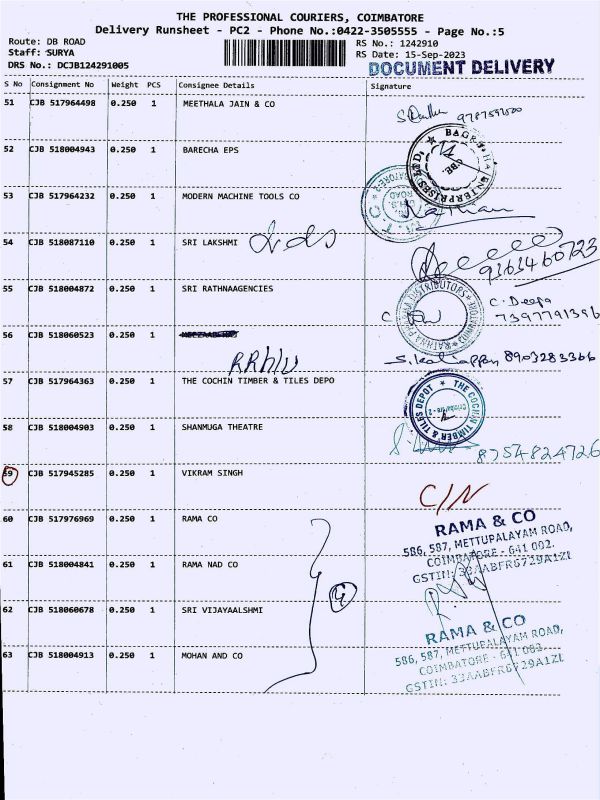 THE PROFESSIONAL COURIERS, COIMBATORE
Delivery Runsheet - PC2 - Phone No.:0422-3505555 - Page No.:5
Route: DB ROAD
RS No.: 1242910
Staff: SURYA
RS Date: 15-Sep-2023
DRS No.: DCJB124291005
DOCUMENT DELIVERY
S No Consignment No Weight PCS Consignee Details Signature
51 CJB 517964498 0.250 1 MEETHALA JAIN & CO
52 CJB 518004943 0.250 1 BARECHA EPS
53 CJB 517964232 0.250 1 MODERN MACHINE TOOLS CO
54 CJB 518087110 0.250 1 SRI LAKSHMI
9363460723
55 CJB 518004872 0.250 1 SRI RATHNAAGENCIES
C. Deepa
7397791396
56 CJB 518060523 0.250 1
8903283366
57 CJB 517964363 0.250 1 THE COCHIN TIMBER & TILES DEPO
THE COCHIN TIMBER & TILES DEPOT
58 CJB 518004903 0.250 1 SHANMUGA THEATRE
8754824726
59 CJB 517945285 0.250 1 VIKRAM SINGH
C/N
60 CJB 517976969 0.250 1 RAMA CO
RAMA & CO
586, 587, METTUPALAYAM ROAD,
COIMBATORE - 641 002.
GSTIN: 33AABFR6729A1ZI
61 CJB 518004841 0.250 1 RAMA NAD CO
62 CJB 518060678 0.250 1 SRI VIJAYAALSHMI
RAMA & CO
586, 587, METTUPALAYAM ROAD,
COIMBATORE - 641 002.
GSTIN: 33AABFR6729A1ZI
63 CJB 518004913 0.250 1 MOHAN AND CO